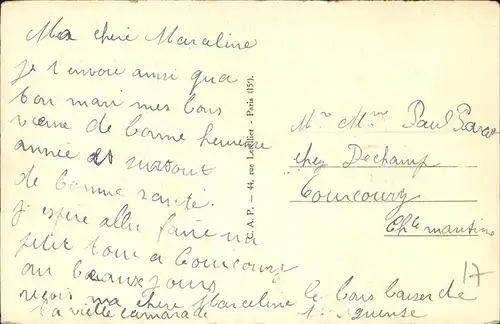 Ma chere Marceline
je t'envoie ainsi qua
ton mari mes bons
vœme de bonne heureuse
année et surtout
de bonne santé.
j espère aller faire un
petit tour a Courcoury
au beaux jours
reçois ma chere Marceline le bons baiser de
ta vielle camarade
C. A. P. — 44, rue Letellier - Paris (15e).
Mr Mme Paul
chez Dechamp
Courcoury
Chte maritime
17